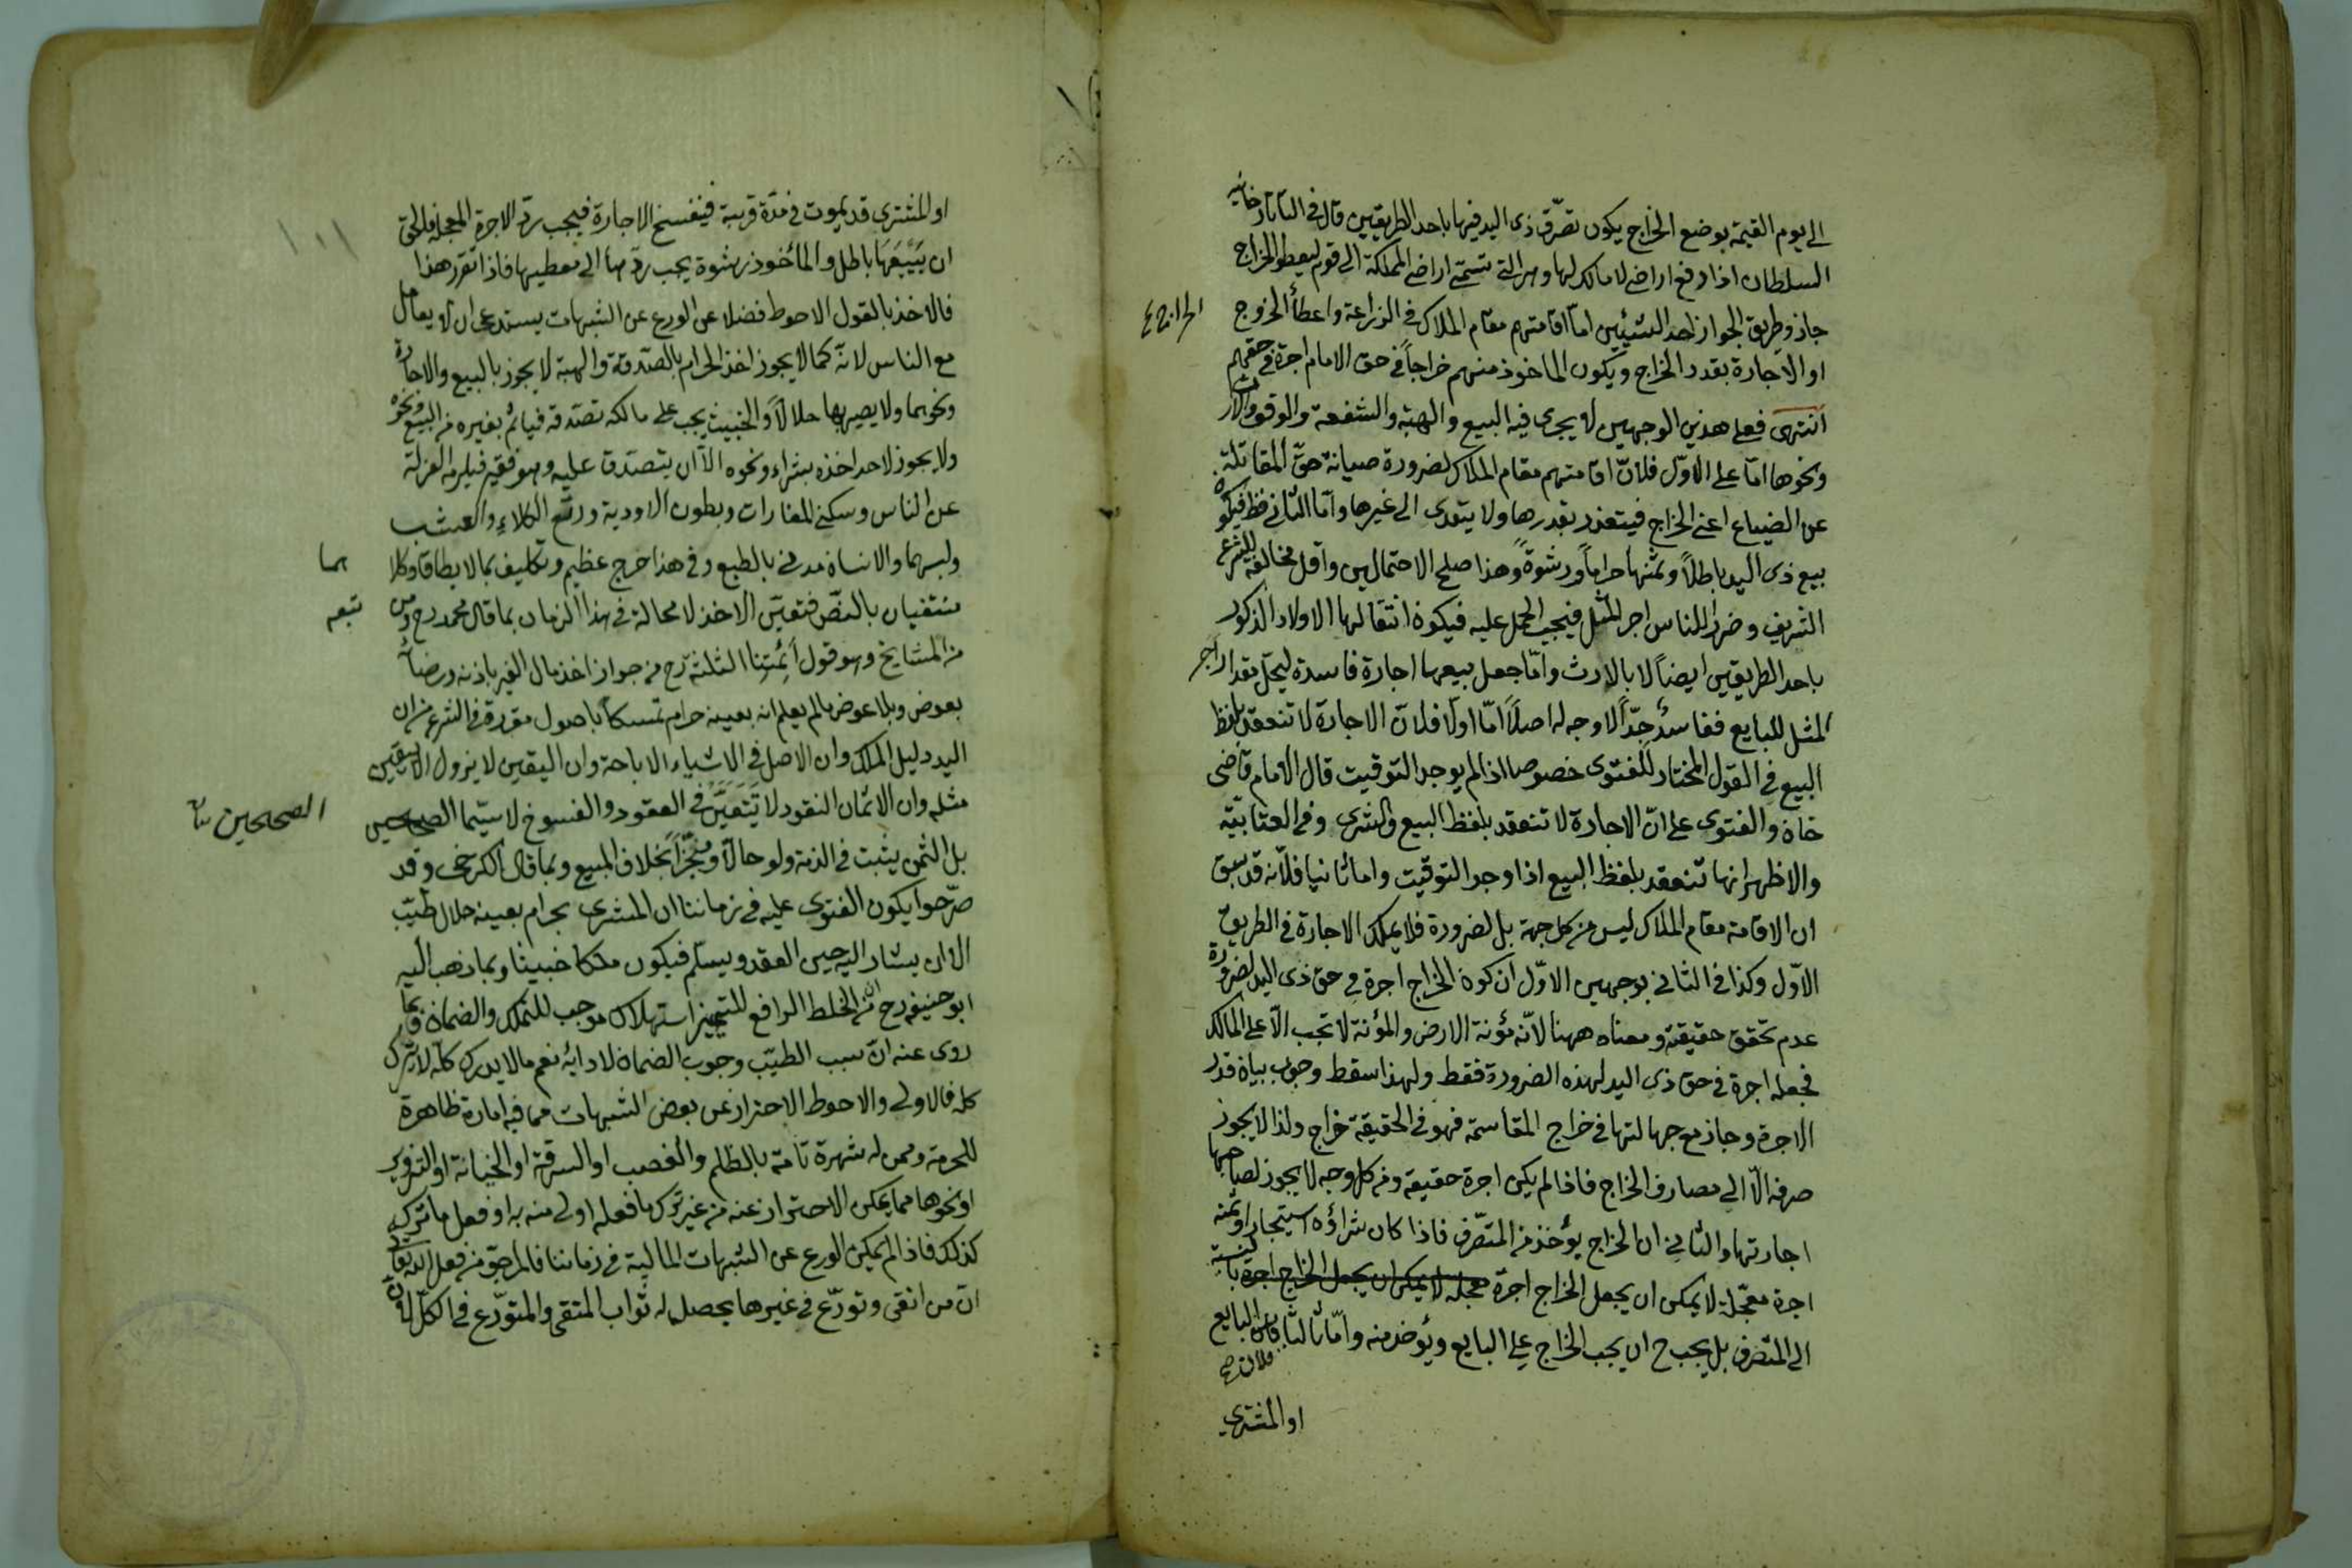 الى يوم القيمة بوضع الخراج يكون تصرّف ذى اليد فيها باحد الطريقين قال فى التاتارخانيه
السلطان اذا دفع اراضى لا مالك لها وهى التى تسمّى اراضى المملكة الى قوم ليعطوا الخراج
جاز وطريق الجواز احد الشيئين امّا اقامتهم مقام الملاك فى الزراعة واعطأ الخروج
الخراج
او الاجارة بقدر الخراج ويكون الماخوذ منهم خراجاً فى حق الامام اجرة فى حقهم
انتهى فعلى هذين الوجهين لا يجرى فيه البيع والهبة والشفعة والوقف والارث
ونحوها امّا على الاوّل فلانّ اقامتهم مقام الملاك لضرورة صيانة حقّ المقاتلة
عن الضياع اعنى الخراج فيتقدر بقدرها ولا يتعدى الى غيرها وامّا الثانى فظ فيكون
بيع ذى اليد باطلاً وثمنها حراماً ورشوةً وهذا صلح الاحتمالين واقل مخالفة للشرع
الشريف وضررا للناس اجر المثل فيجب الحمل عليه فيكون انتقالها الاولاد الذكور
باحد الطريقين ايضاً لا بالارث وامّا جعل بيعها اجارة فاسدة ليحلّ مقدار اجر
المثل للبايع ففاسدٌ جدّاً لا وجه له اصلاً امّا اولا فلانّ الاجارة لا تنعقد بلفظ
البيع فى القول المختار للفتوى خصوصا اذا لم يوجد التوقيت قال الامام قاضى
خان والفتوى على انّ الاجارة لا تنعقد بلفظ البيع والشرى وفى العتّابيّة
والاظهر انها تنعقد بلفظ البيع اذا وجد التوقيت واما ثانيا فلأنه قد سبق
ان الاقامة مقام الملاك ليس من كل جهة بل لضرورة فلا يملك الاجارة فى الطريق
الاوّل وكذا فى الثانى بوجهين الاوّل ان كون الخراج اجرة فى حق ذى اليد لضرورة
عدم تحقق حقيقته ومعناه ههنا لانّه مؤنة الارض والمؤنة لا تجب الاّ على المالك
فجعله اجرة فى حق ذى اليد لهذه الضرورة فقط ولهذا سقط وجوب بيان قدر
الاجرة وجاز مع جهالتها فى خراج المقاسمة فهو فى الحقيقة خراج ولذا لا يجوز
صرفه الاّ الى مصارف الخراج فاذا لم يكن اجرة حقيقة ومن كل وجه لا يجوز لصاحبها
اجارتها والثانى ان الخراج يؤخذ من المتصرّف فاذا كان شراؤه استيجارا وثمنه
اجرة معجّلة لا يمكن ان يجعل الخراج اجرة معجلة لا يمكن ان يجعل الخراج اجرة بالنسبة
الى المتصرف بل يجب ح ان يجب الخراج على البايع ويؤخذ منه وامّا ثالثا فلان البايع
فلان صح
او المشترى
او المشترى قد يموت فى مدّة قريبة فينفسخ الاجارة فيجب ردّ الاجرة المعجلة فالحق
ان بَيْعَهَا باطل والمأخوذ رشوة يجب ردّها الى معطيها فاذا تقرر هذا
فالاخذ بالقول الاحوط فضلا عن الورع عن الشبهات يستدعى ان لا يعامل
مع الناس لانّه كما لا يجوز اخذ الحرام بالصّدقة والهبة لا يجوز بالبيع والاجارة
ونحوهما ولا يصير بها حلالاً والخبيث يجب على مالكه تصدّقه فيأثم بغيره من البيع ونحوه
ولا يجوز لاحد اخذه بشراء ونحوه الاّ ان يتصدّق عليه وهو فقير فيلزم العزلة
عن الناس وسكنى المغارات وبطون الاودية ورتع الكلاء والعشب
ولبسهما والانسان مدنى بالطبع وفى هذا حرج عظيم وتكليف بما لا يطاق وكلا
هما
منتفيان بالنصّ فتعيّن الاخذ لا محالة فى هذا الزمان بما قال محمد رح ومن
تبعه
من المشايخ وهو قول أَئِمَّتِنا الثلثة رح من جواز اخذ مال الغير باذنه ورضاه
بعوض وبلا عوض ما لم يعلم انه بعينه حرام تمسكاً باصول مقررة فى الشرع من ان
اليد دليل الملك وان الاصل فى الاشياء الاباحة وان اليقين لا يزول الا بيقين
مثله وان الاثمان النقود لا تَتَعَيَّنُ فى العقود والفسوخ لا سيّما الصحيحين
الصحيحين
بل الثمن يثبت فى الذمة ولو حالاً ومنجّزاً بخلاف المبيع وبما قال الكرخى وقد
صرّحوا بكون الفتوى عليه فى زماننا ان المشترى بحرام بعينه حلال طيّب
الا ان يشار اليه حين العقد ويسلم فيكون ملكا خبيثا وبما ذهب اليه
ابو حنيفه رح من ان الخلط الرافع للتمييز استهلاك موجب للتملك والضمان وبما
روى عنه انّ سبب الطيّب وجوب الضمان لا دائه نعم ما لا يدرك كلّه لا يترك
كله فالاولى والاحوط الاحتراز عن بعض الشبهات مما فيه امارة ظاهرة
للحرمة وممن له شهرة تامة بالظلم والغصب او السرقة او الخيانة او التزوير
او نحوها مما يمكن الاحتراز عنه من غير ترك ما فعله اولى منه به او فعل ما تركه
كذلك فاذا لم يمكن الورع عن الشبهات المالية فى زماننا فالمرجوّ من فعل الله تعالى
انّ من اتقى وتورّع فى غيرها يحصل له ثواب المتقى والمتورّع فى الكلّ لانّ